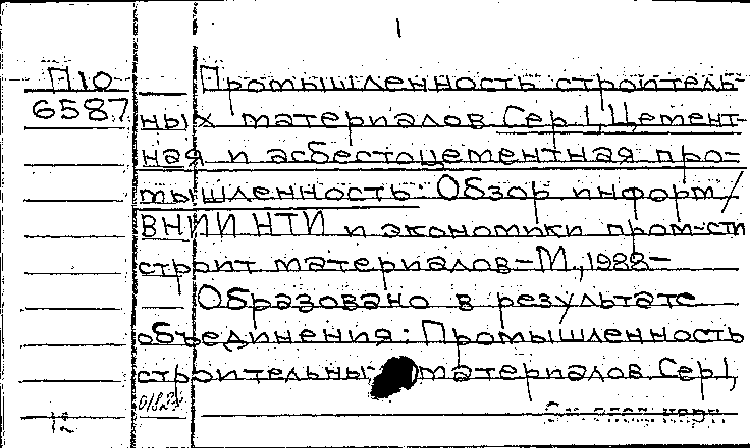 1
П10
6587
Промышленность строитель-
ных материалов. Сер. 1, Цемент-
ная и асбестоцементная про-
мышленность: Обзор. информ /
ВНИИ НТИ и экономики пром-сти
строит. материалов. – М., 1988 –
Образовано в результате
объединения: Промышленность
строительных материалов. Сер. 1,
См. след. карт.
12